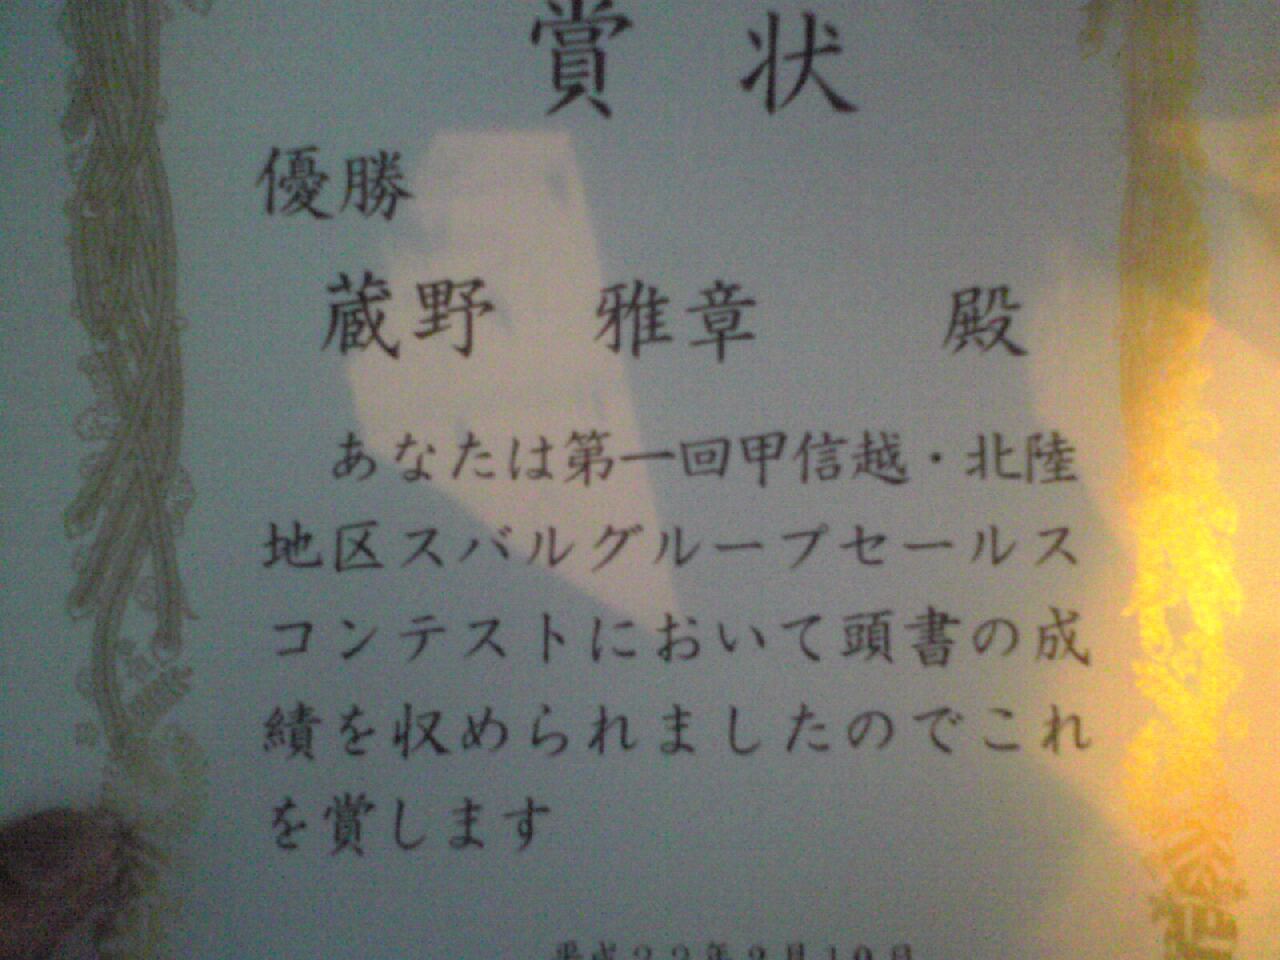 賞状
優勝
蔵野 雅章 殿
あなたは第一回甲信越・北陸
地区スバルグループセールス
コンテストにおいて頭書の成
績を収められましたのでこれ
を賞します